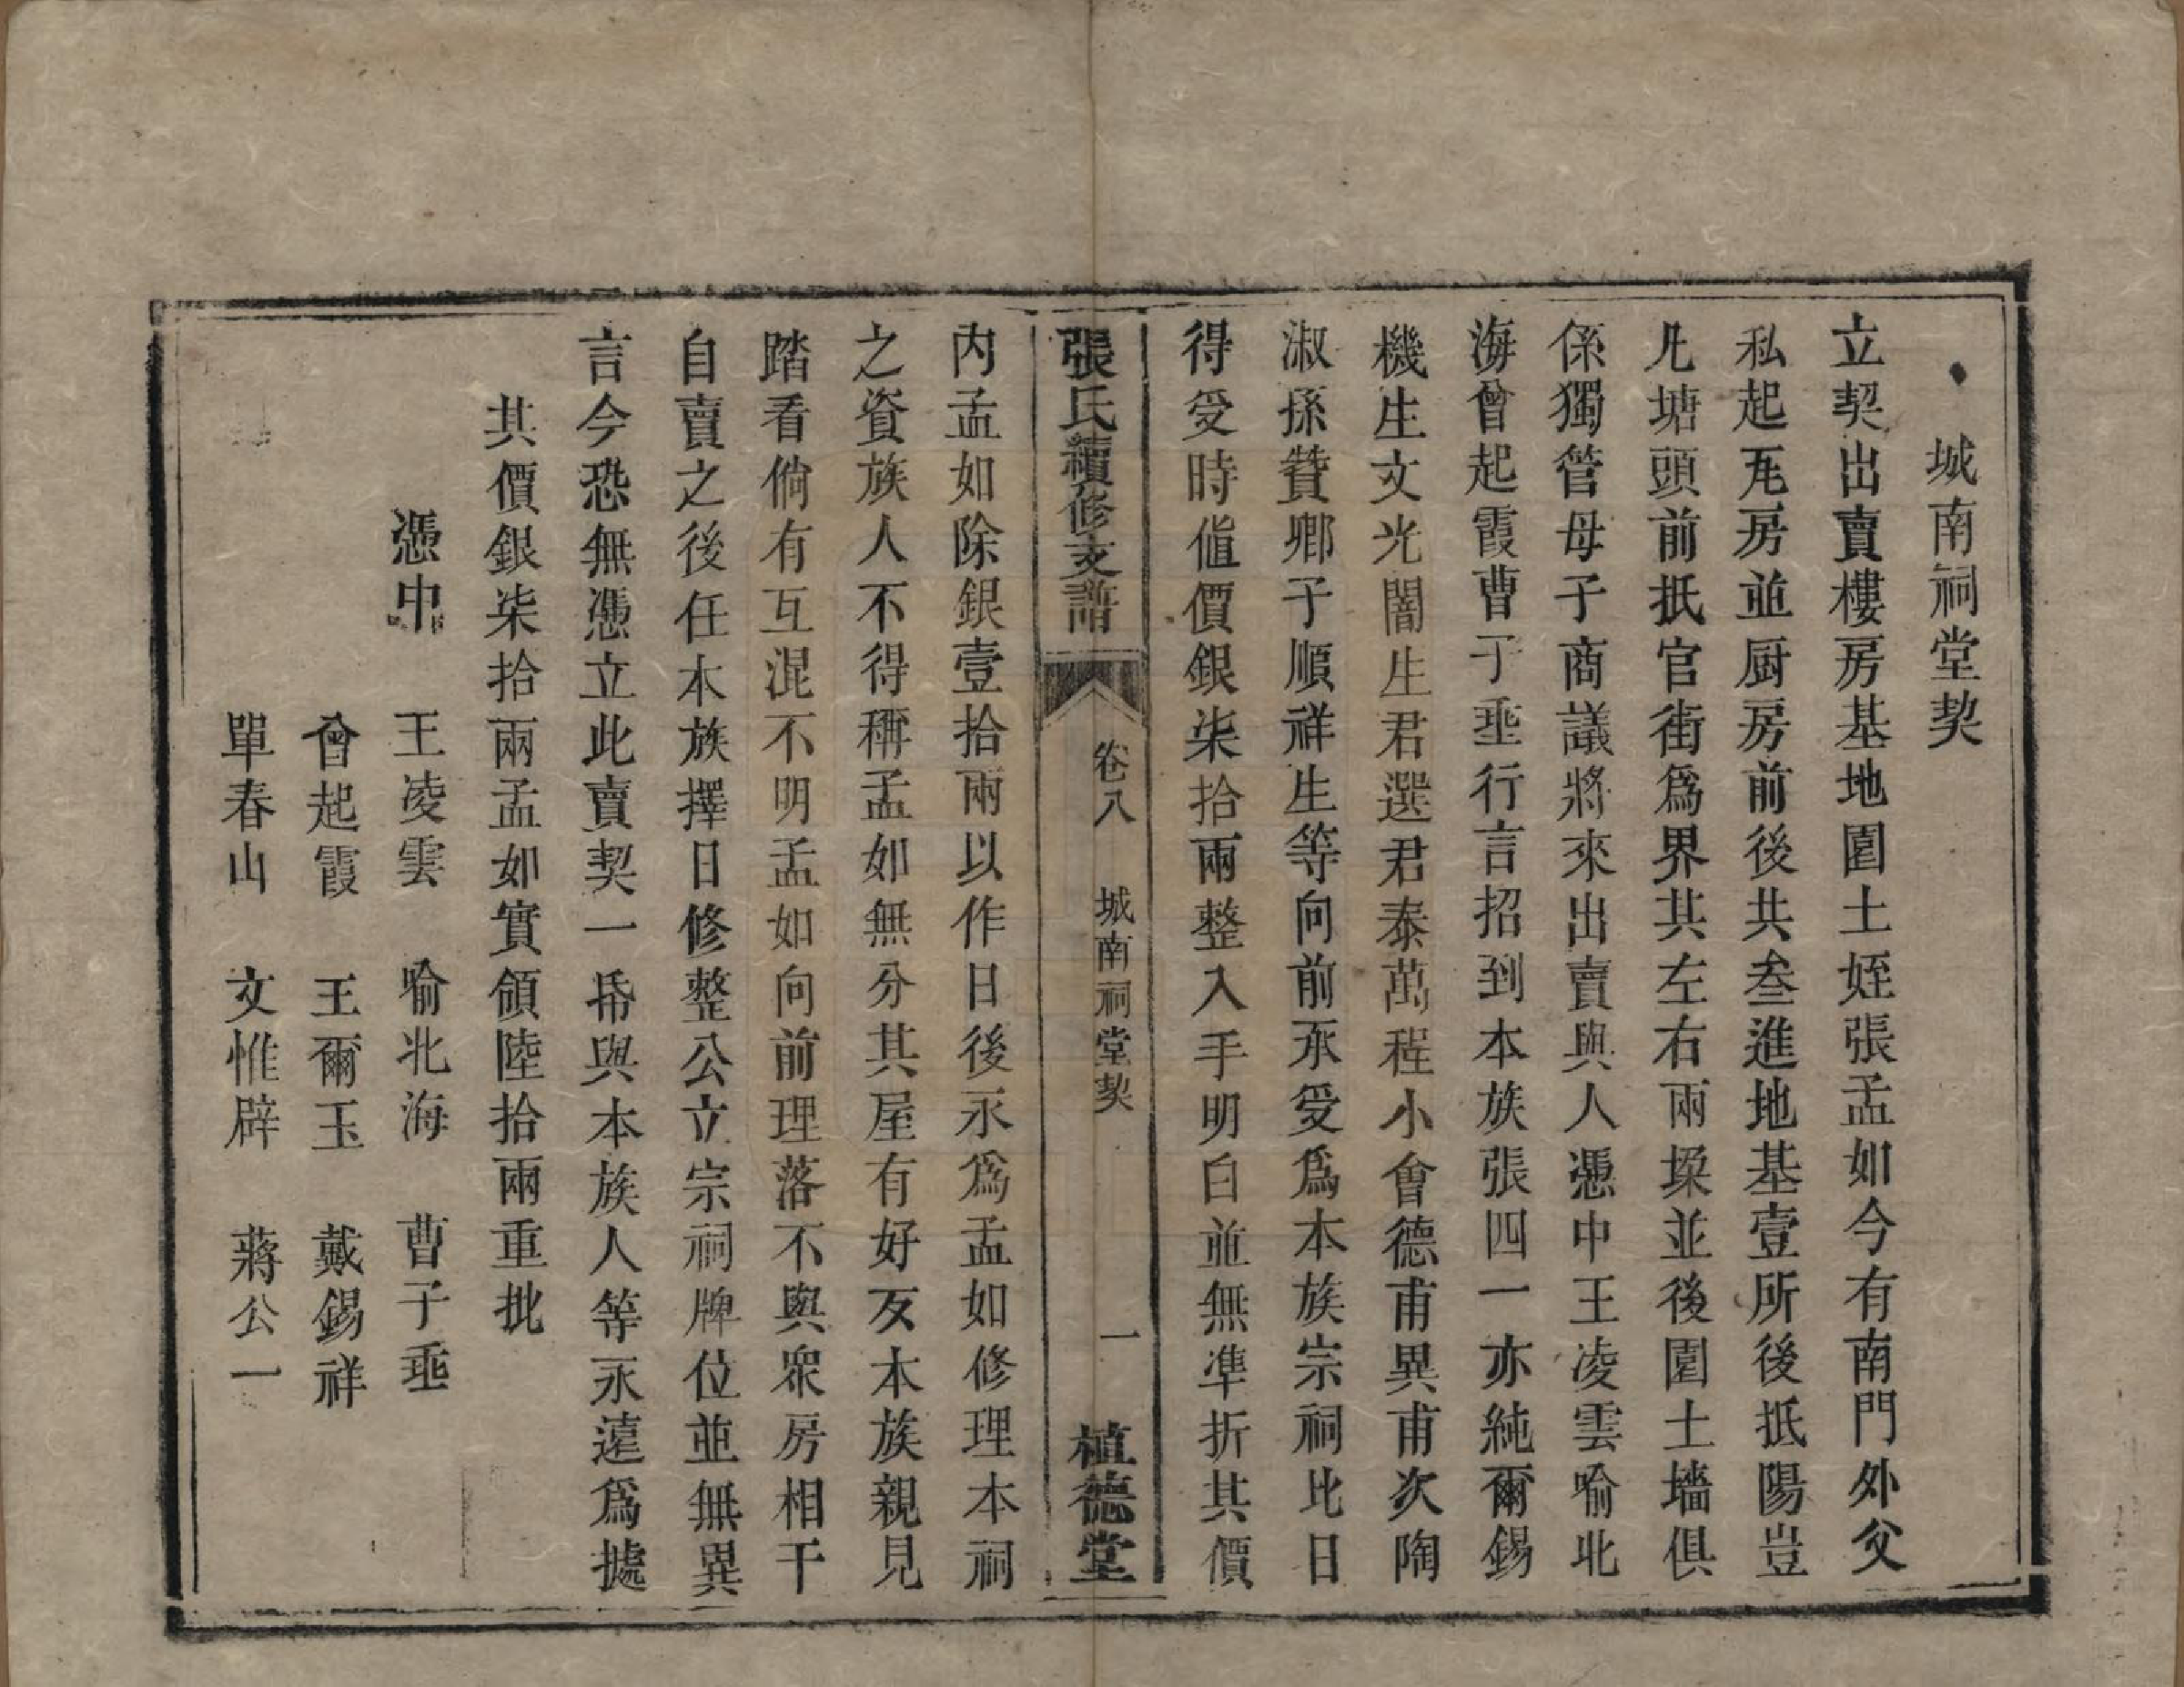 城南祠堂契
立契出賣樓房基地園土姪張孟如今有南門外父
私起瓦房並厨房前後共叁進地基壹所後抵陽豈
凡塘頭前抵官街爲界其左右兩垜並後園土墻俱
係獨管母子商議將來出賣與人憑中王凌雲喻北
海曾起霞曹子垂行言招到本族張四一亦純爾錫
機生文光闇生君選君泰萬程小會德甫異甫次陶
淑孫贊鄉子順祥生等向前承受爲本族宗祠比日
得受時值價銀柒拾兩整入手明白並無凖折其價
張氏續修支譜
卷八
城南祠堂契
一
植德堂
內孟如除銀壹拾兩以作日後永爲孟如修理本祠
之資族人不得稱孟如無分其屋有好友本族親見
踏看倘有互混不明孟如向前理落不與衆房相干
自賣之後任本族擇日修整公立宗祠牌位並無異
言今恐無憑立此賣契一帋與本族人等永遠爲據
其價銀柒拾兩孟如實領陸拾兩重批
憑中 王凌雲 喻北海 曹子垂
曾起霞 王爾玉 戴錫祥
單春山 文惟辟 蔣公一